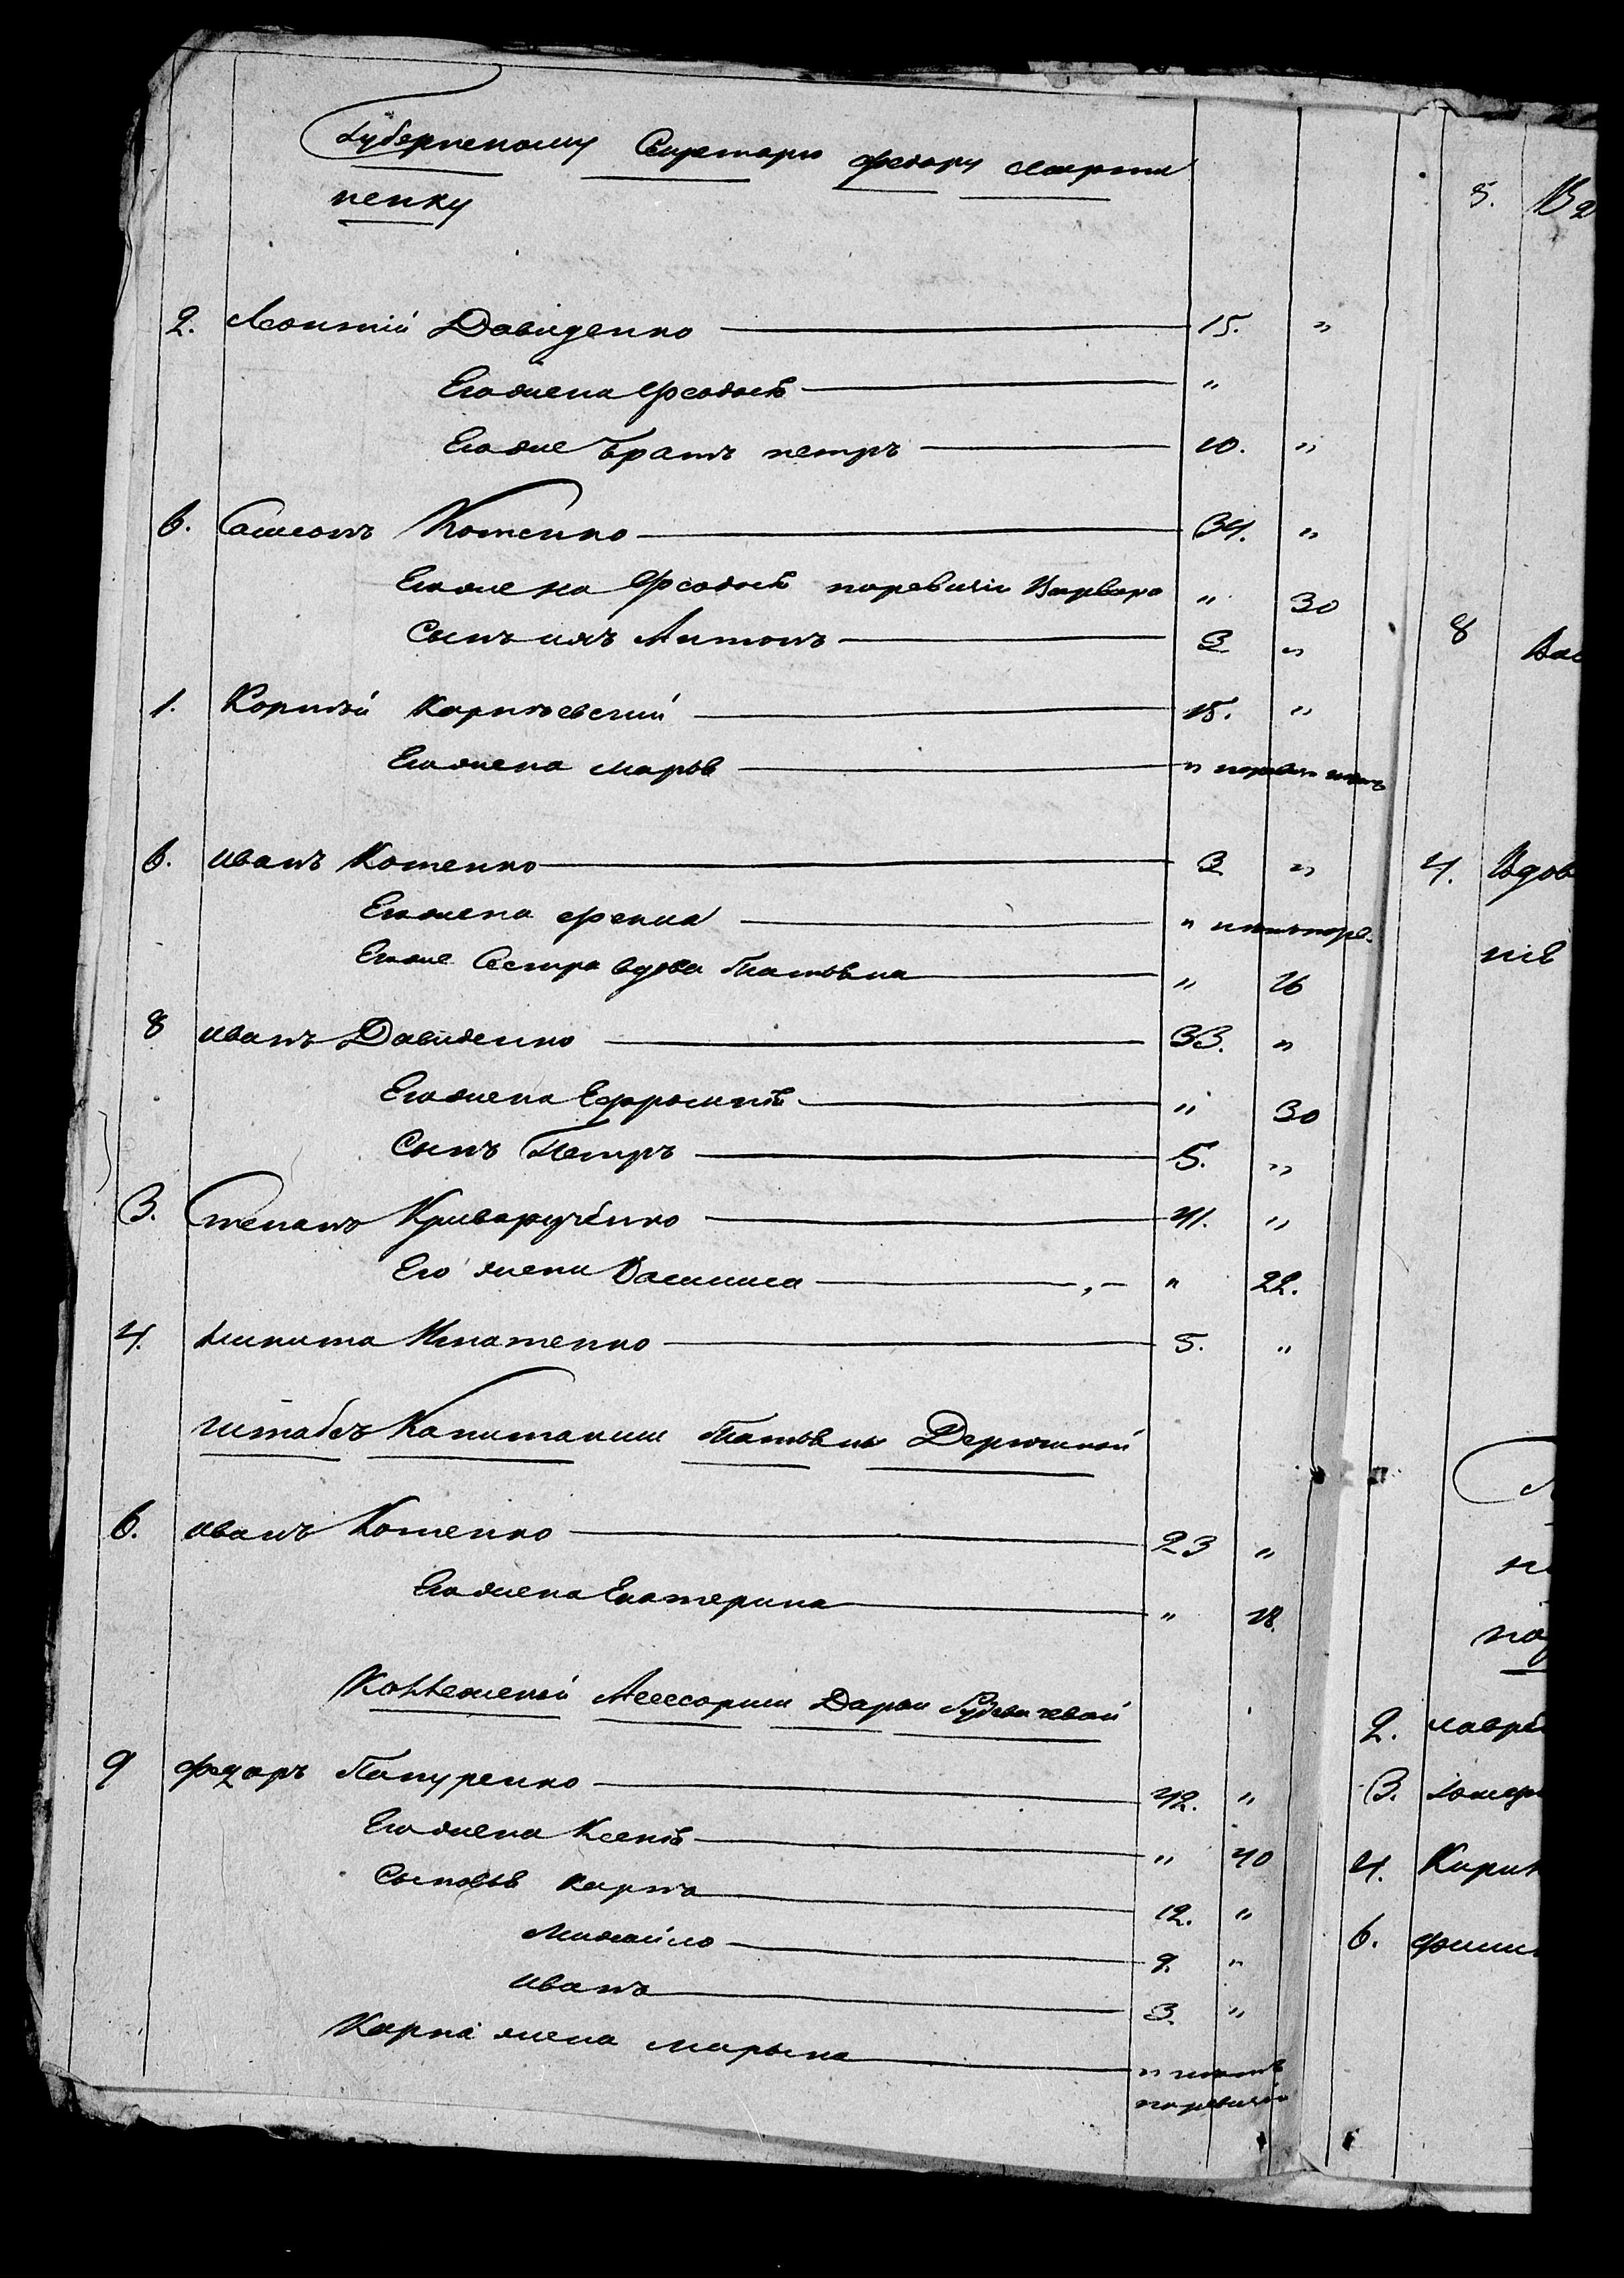 Губернскому Секретарю Федору Марти
ненку
2. Леонтій Давиденко 15. "
Его жена Феодосія "
Его же братъ петръ 10. "
6. Самсонъ Котенко 34. "
Его же на Феодосія поревизіи Варвара " 30
Сынъ ихъ Антонъ 3 "
1. Корнѣй Корнѣевскій 15. "
Его жена марья "
6. иванъ Котенко 3 "
Его жена фенна "
Его же Сестра вдова Татьяна " 16
8 иванъ Давиденко 33. "
Его жена Ефросинія " 30
Сынъ Петръ 5. "
3. Степанъ Криворученко 41. "
Его жена Василиса " 22.
4. Никита Игнатенко 5. "
Штабсъ Капитанши Татьяны
6. иванъ Котенко 23 "
Его жена Екатерина " 18.
Коллежской Асессорши Дарьи
9 федоръ Папуренко 42. "
Его жена Ксенія " 40
Сыновья карпъ 12. "
Михайло 9. "
иванъ 3. "
Карпа жена марьяна "
поревизіи
5.
8
4. Вдов
2.
3.
4. Кирил
6.